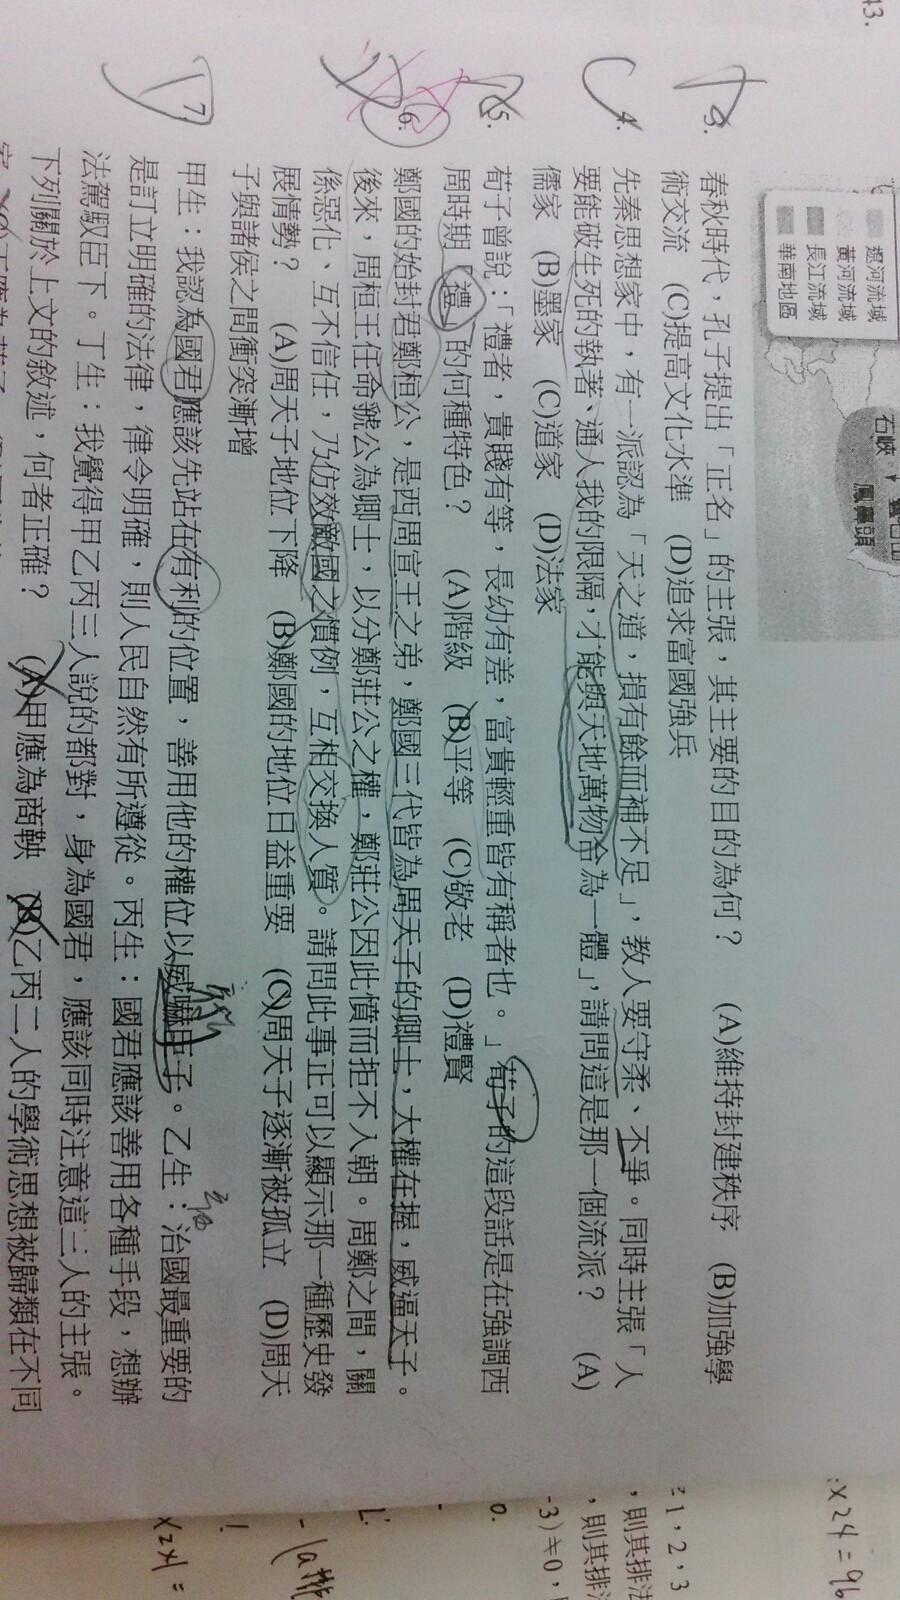 13.
遼河流域
黃河流域
長江流域
華南地區
石峽
鳳鼻頭
3.
春秋時代，孔子提出「正名」的主張，其主要的目的為何？ (A)維持封建秩序 (B)加強學
術交流 (C)提高文化水準 (D)追求富國強兵
C 4.
先秦思想家中，有一派認為「天之道，損有餘而補不足」，教人要守柔、不爭。同時主張「人
要能破生死的執著、通人我的限隔，才能與天地萬物合為一體」，請問這是那一個流派？ (A)
儒家 (B)墨家 (C)道家 (D)法家
5.
荀子曾說：「禮者，貴賤有等，長幼有差，富貴輕重皆有稱者也。」荀子的這段話是在強調西
周時期「禮」的何種特色？ (A)階級 (B)平等 (C)敬老 (D)禮賢
6.
鄭國的始封君鄭桓公，是西周宣王之弟，鄭國三代皆為周天子的卿士，大權在握，威逼天子。
後來，周桓王任命虢公為卿士，以分鄭莊公之權，鄭莊公因此憤而拒不入朝。周鄭之間，關
係惡化、互不信任，乃仿效敵國之慣例，互相交換人質。請問此事正可以顯示那一種歷史發
展情勢？ (A)周天子地位下降 (B)鄭國的地位日益重要 (C)周天子逐漸被孤立 (D)周天
子與諸侯之間衝突漸增
D 7.
甲生：我認為國君應該先站在有利的位置，善用他的權位以威嚇臣子。乙生：治國最重要的
是訂立明確的法律，律令明確，則人民自然有所遵從。丙生：國君應該善用各種手段，想辦
法駕馭臣下。丁生：我覺得甲乙丙三人說的都對，身為國君，應該同時注意這三人的主張。
下列關於上文的敘述，何者正確？ (A)甲應為商鞅 (B)乙丙二人的學術思想被歸類在不同
x24=96
1，2，3
，則其排法
，則其排
-3)≠0，
0.